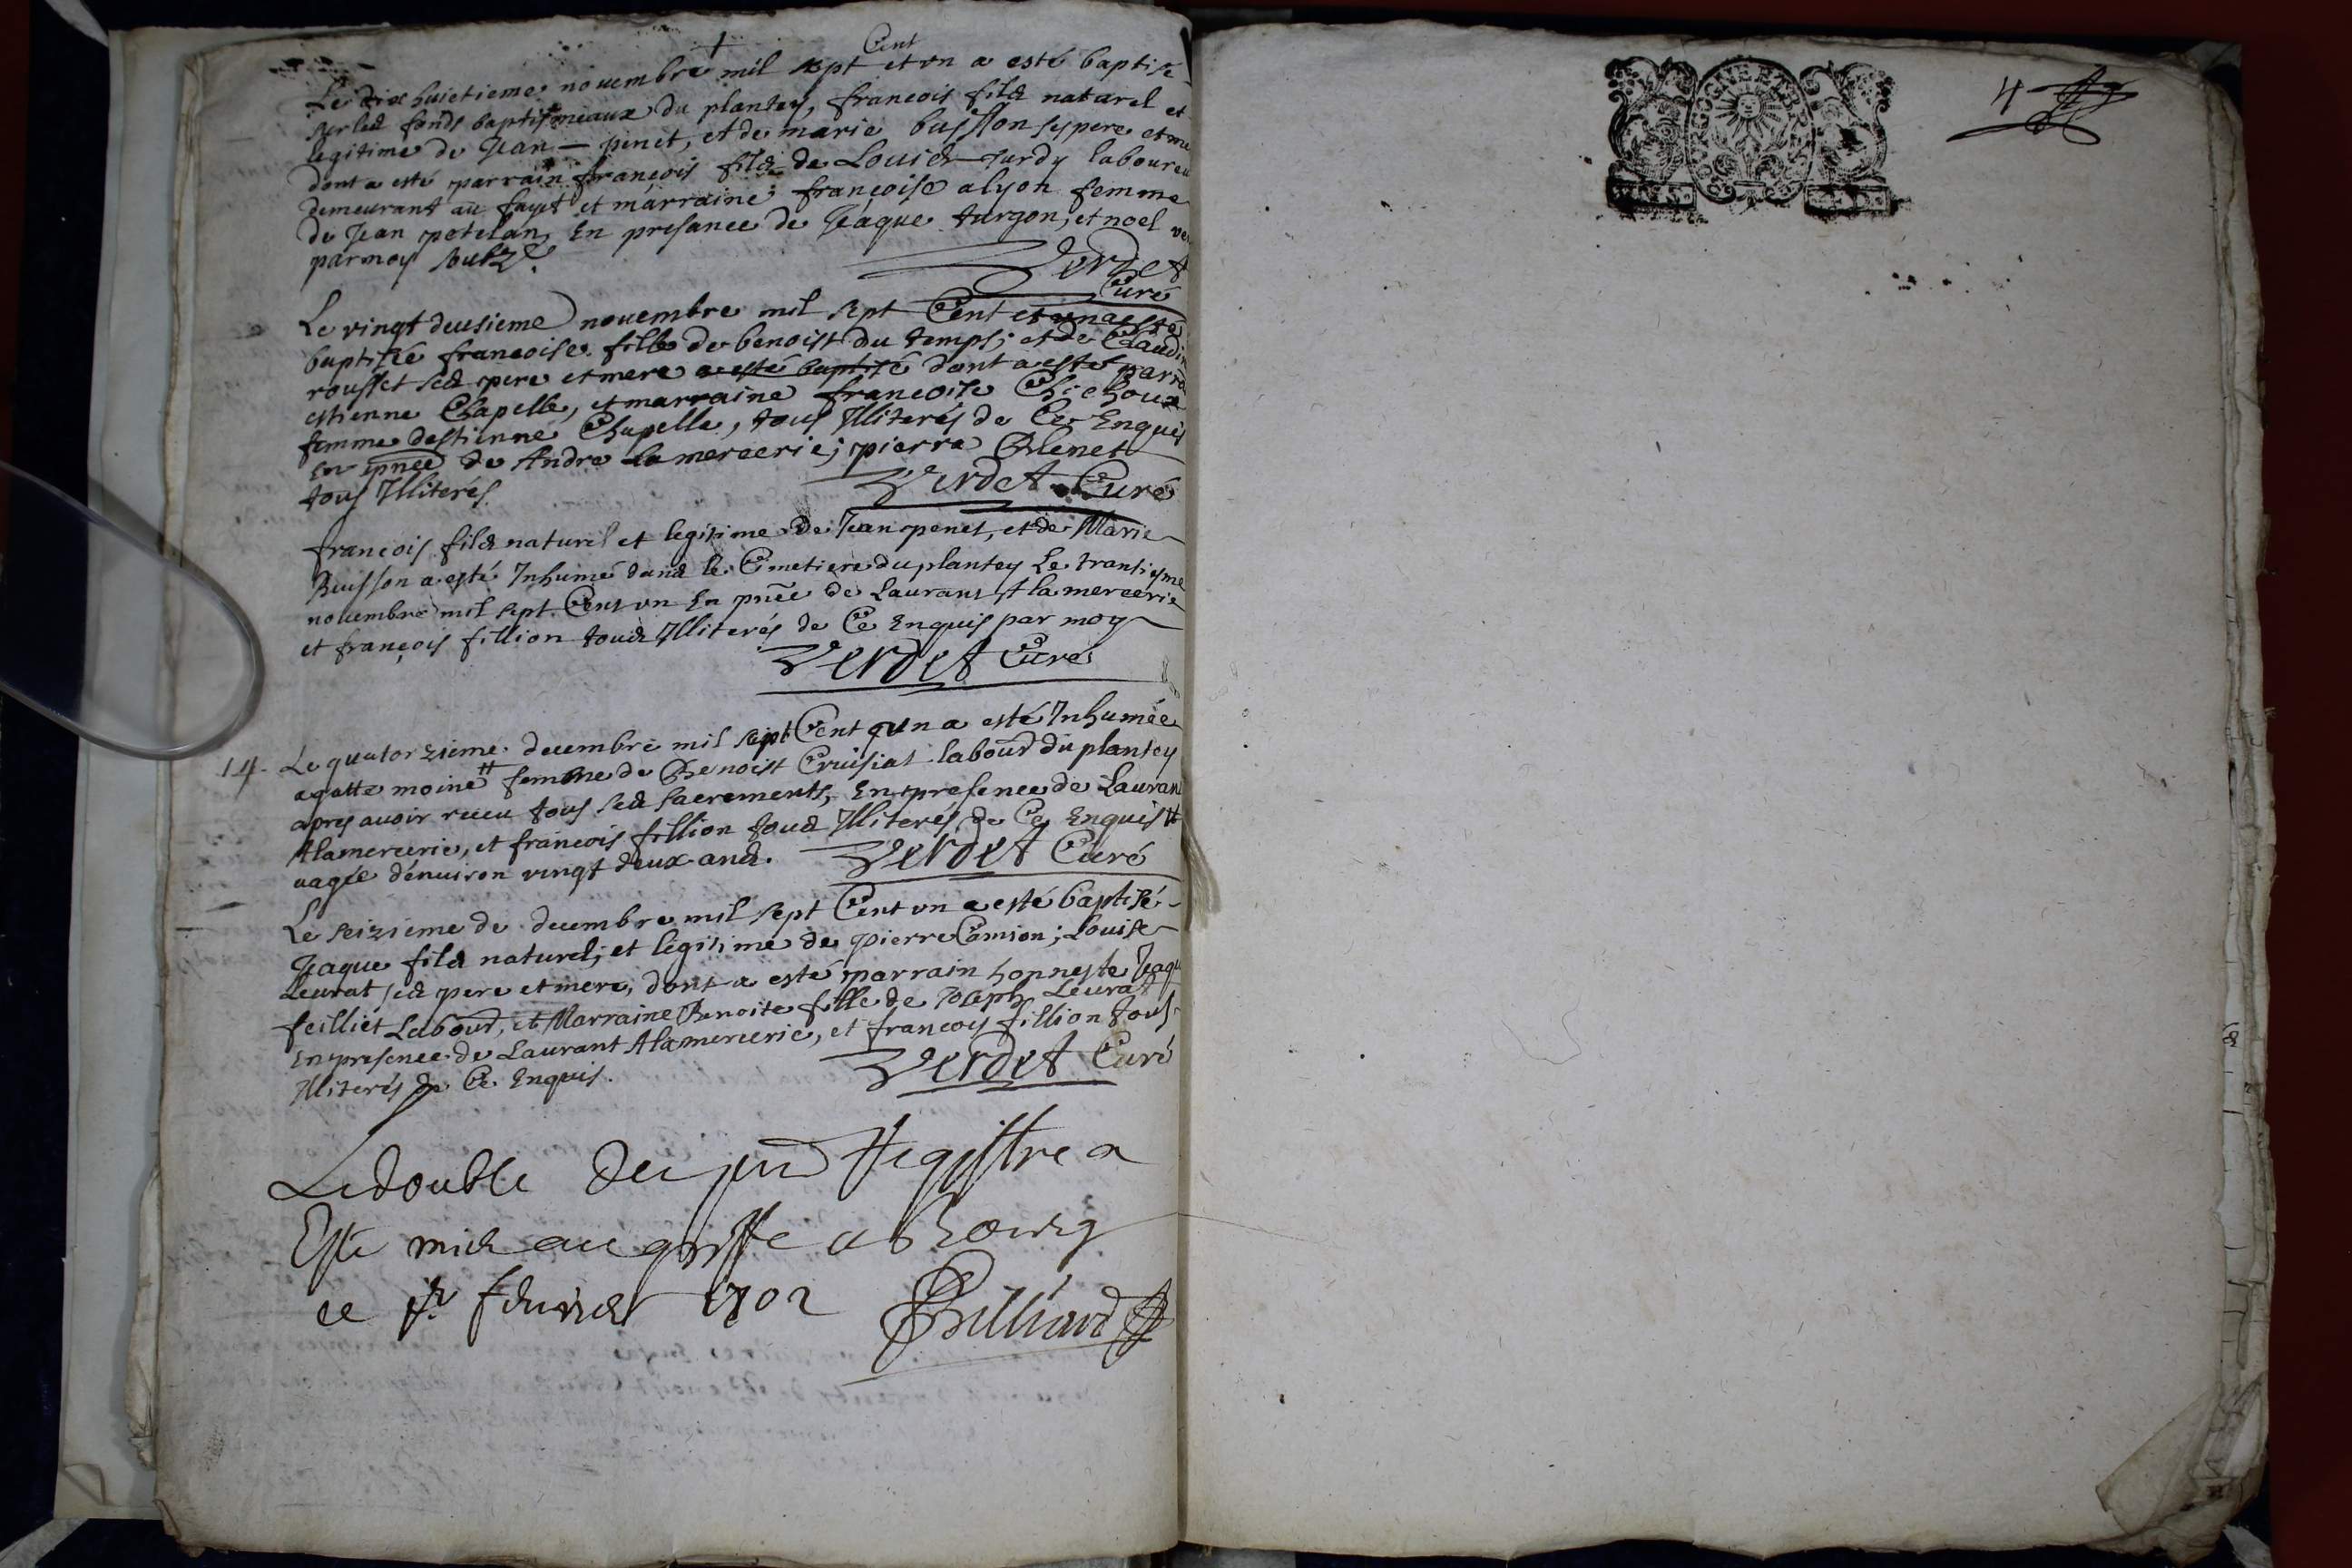 Le dix huictieme novembre mil sept Cent et vn a esté baptisé
sur les fonds baptismeaux du plantey, francois fils naturel et
legitime de Jean penet, et de marie buisson ses pere et me
dont a esté parrain françois fils de Louis Jurdy laboureu
demeurant au fayet et marraine françoise alyon femme
de Jean potelan, En presance de Jaque turgon, et noel
par moy soubz.
Verdet
Curé
Le vingt deusieme novembre mil sept Cent et vn a esté
baptizé francoise fille de benoist du temps; et de Claudin
rousset ses pere et mere a esté baptizé dont a esté parra
estienne Chapelle, et marraine francoise Chichoux
femme destienne Chapelle, tous Illiterés de Ce Enquis
En pnce de Andre la mercerie; pierre Blenet
tous Illiterés.
Verdet Curé
francois fils naturel et legitime de Jean penet, et de Marie
Buisson a esté Inhumé dans le Cimetiere du plantey Le trantiesme
novembre mil sept Cent vn En pnce de Laurans A la mercerie
et françois fillion tous Illiterés de Ce Enquis par moy
Verdet Curé
14. Le quatorzieme decembre mil sept Cent vn a esté Inhumée
agatte moine # femme de Benoist Cruisiat labour du plantey
apres auoir receu tous ses sacrements, En presence de Lauran
Alamercerie, et francois fillion tous Illiterés de Ce Enquis #
aagée dénuiron vingt deux ans. Verdet Curé
Le seizieme de decembre mil sept Cent vn a esté baptisé
Jaque fils naturel; et legitime de pierre Camion; Louise
Leurat ses pere et mere; dont a esté parrain honneste Jaqu
feilliet Labour, et Marraine Benoite fille de Joseph Leurat
En presence de Laurant Alamercerie, et francoys fillion tous
Illiterés de Ce Enquis.
Verdet Curé
Le double du pnt Registre a
Esté mis au greffe a bourg
ce pr feurier 1702 Billiard
4
BOURGOGNE ET BRESSE